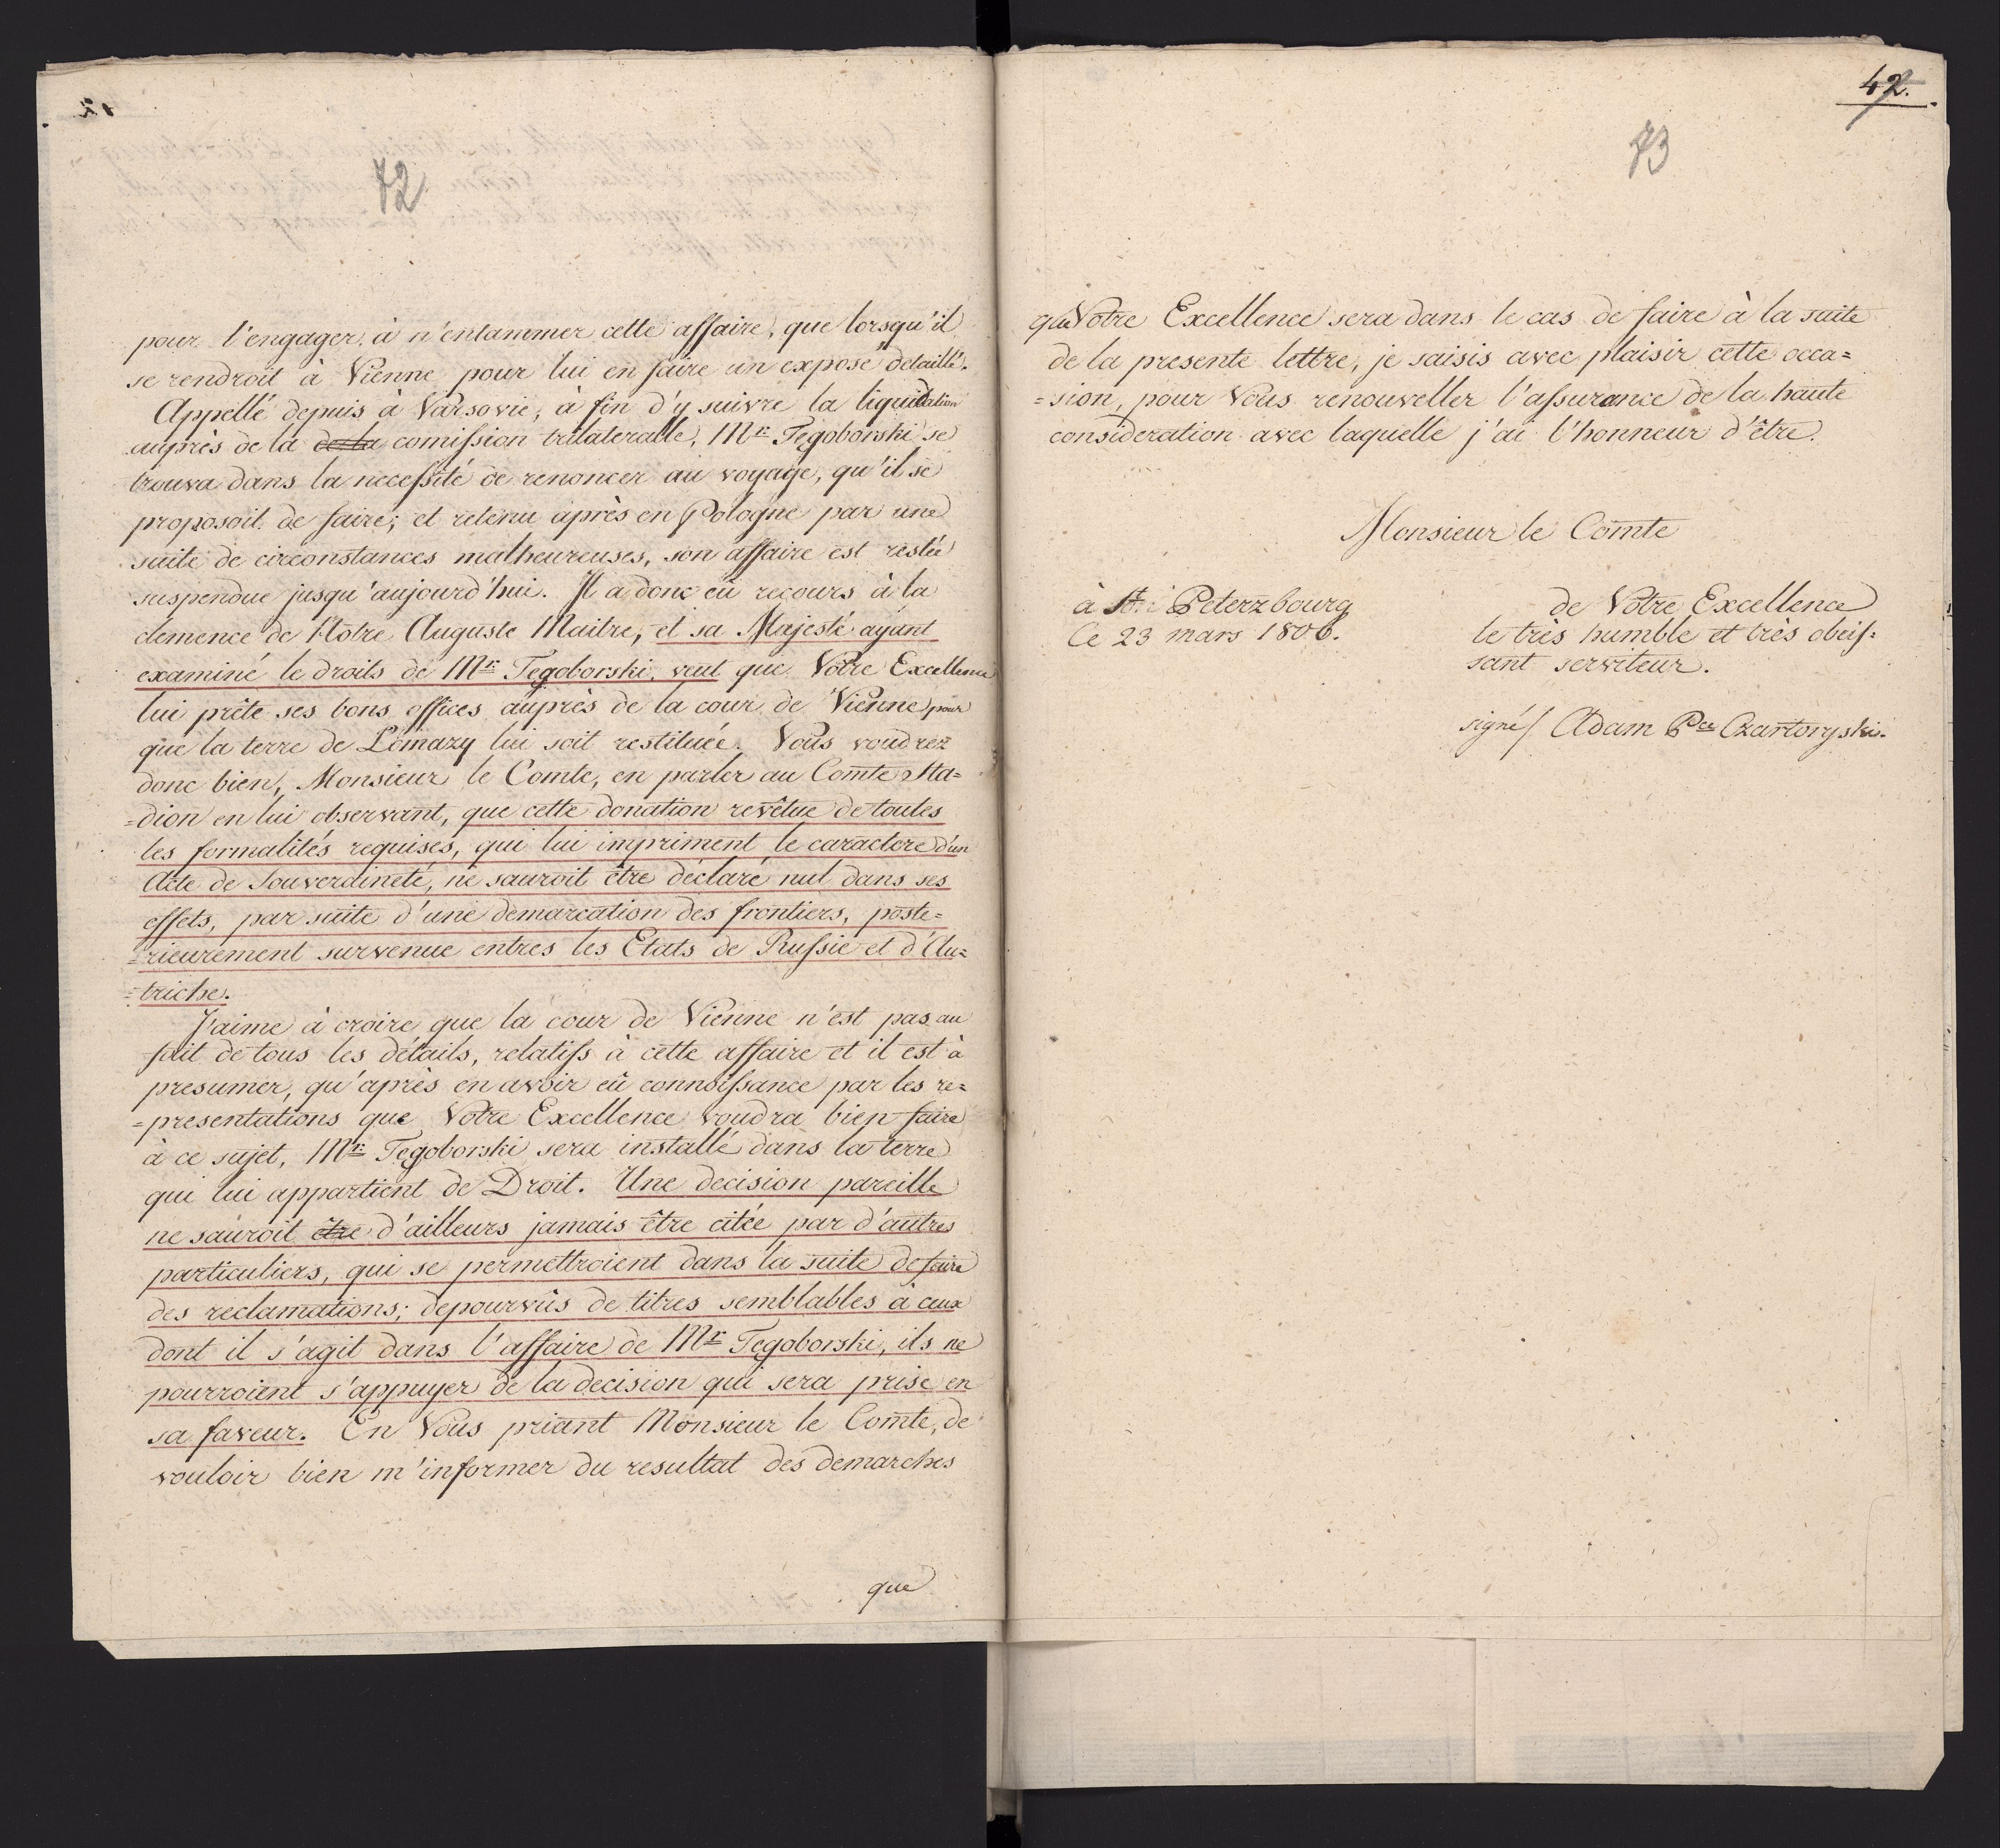 72
pour l'engager, à n'entammer cette affaire, que lorsqu'il
se rendroit à Vienne pour lui en faire un exposé détaillé.
Appellé depuis à Varsovie, à fin d'y suivre la liquidation
auprès de la de la comission trilateralle, Mr. Tęgoborski se
trouva dans la necessité de renoncer au voyage, qu'il se
proposoit de faire; et retenu après en Pologne par une
suite de circonstances malheureuses, son affaire est restée
suspendue jusqu'aujourd'hui. Il a donc eû recours à la
clemence de Notre Auguste Maitre, et sa Majesté ayant
examiné le droits de Mr. Tegoborski, veut que Votre Excellence
lui prête ses bons offices auprès de la cour de Vienne pour
que la terre de Lomazy lui soit restituée. Vous voudrez
donc bien, Monsieur le Comte, en parler au Comte Sta=
=dion en lui observant, que cette donation revêtue de toutes
les formalités requises, qui lui impriment le caractere d'un
Acte de Souveraineté, ne sauroit être déclaré nul dans ses
effets, par suite d'une demarcation des frontiers, poste=
=rieurement survenue entres les Etats de Russie et d'Au=
=triche.
J'aime à croire que la cour de Vienne n'est pas au
fait de tous les détails, relatifs à cette affaire et il est à
presumer, qu'après en avoir eû connoissance par les re=
=presentations que Votre Excellence voudra bien faire
à ce sujet, Mr. Tegoborski sera installé dans la terre
qui lui appartient de Droit. Une decision pareille
ne sauroit être d'ailleurs jamais être citée par d'autres
particuliers, qui se permettroient dans la suite de faire
des reclamations; depourvûs de titres semblables à ceux
dont il s'agit dans l'affaire de Mr. Tegoborski, ils ne
pourroient s'appuyer de la decision qui sera prise en
sa faveur. En Vous priant Monsieur le Comte, de
vouloir bien m'informer du resultat des demarches
que
42.
73
que Votre Excellence sera dans le cas de faire à la suite
de la presente lettre, je saisis avec plaisir cette occa=
=sion, pour Vous renouveller l'assurance de la haute
consideration avec laquelle j'ai l'honneur d'être.
Monsieur le Comte
à St. Peterzbourg
Ce 23 mars 1806.
de Votre Excellence
le très humble et très obeis=
sant serviteur.
signé/ Adam Pce Czartoryski.